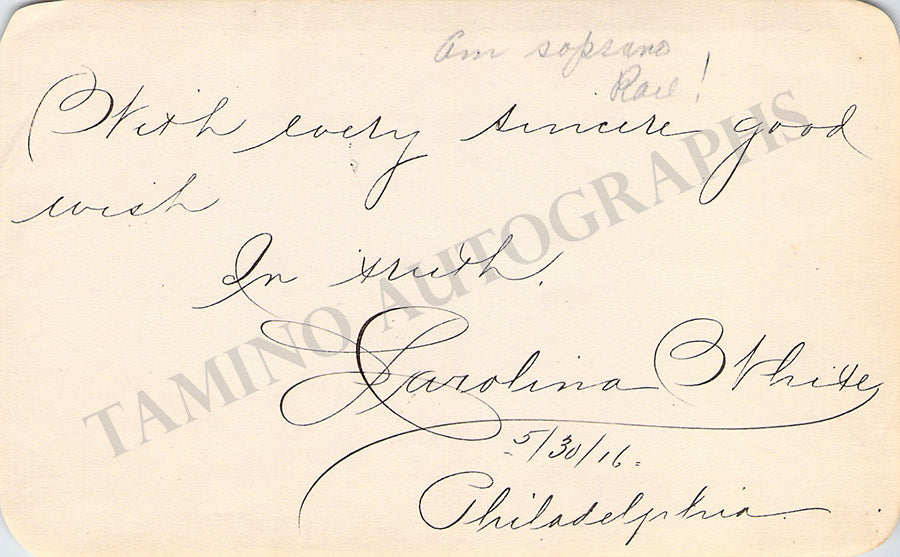 Am soprano
Rare!
With every sincere good
wish
In truth.
Carolina White
5/30/16.
Philadelphia
TAMINO AUTOGRAPHS